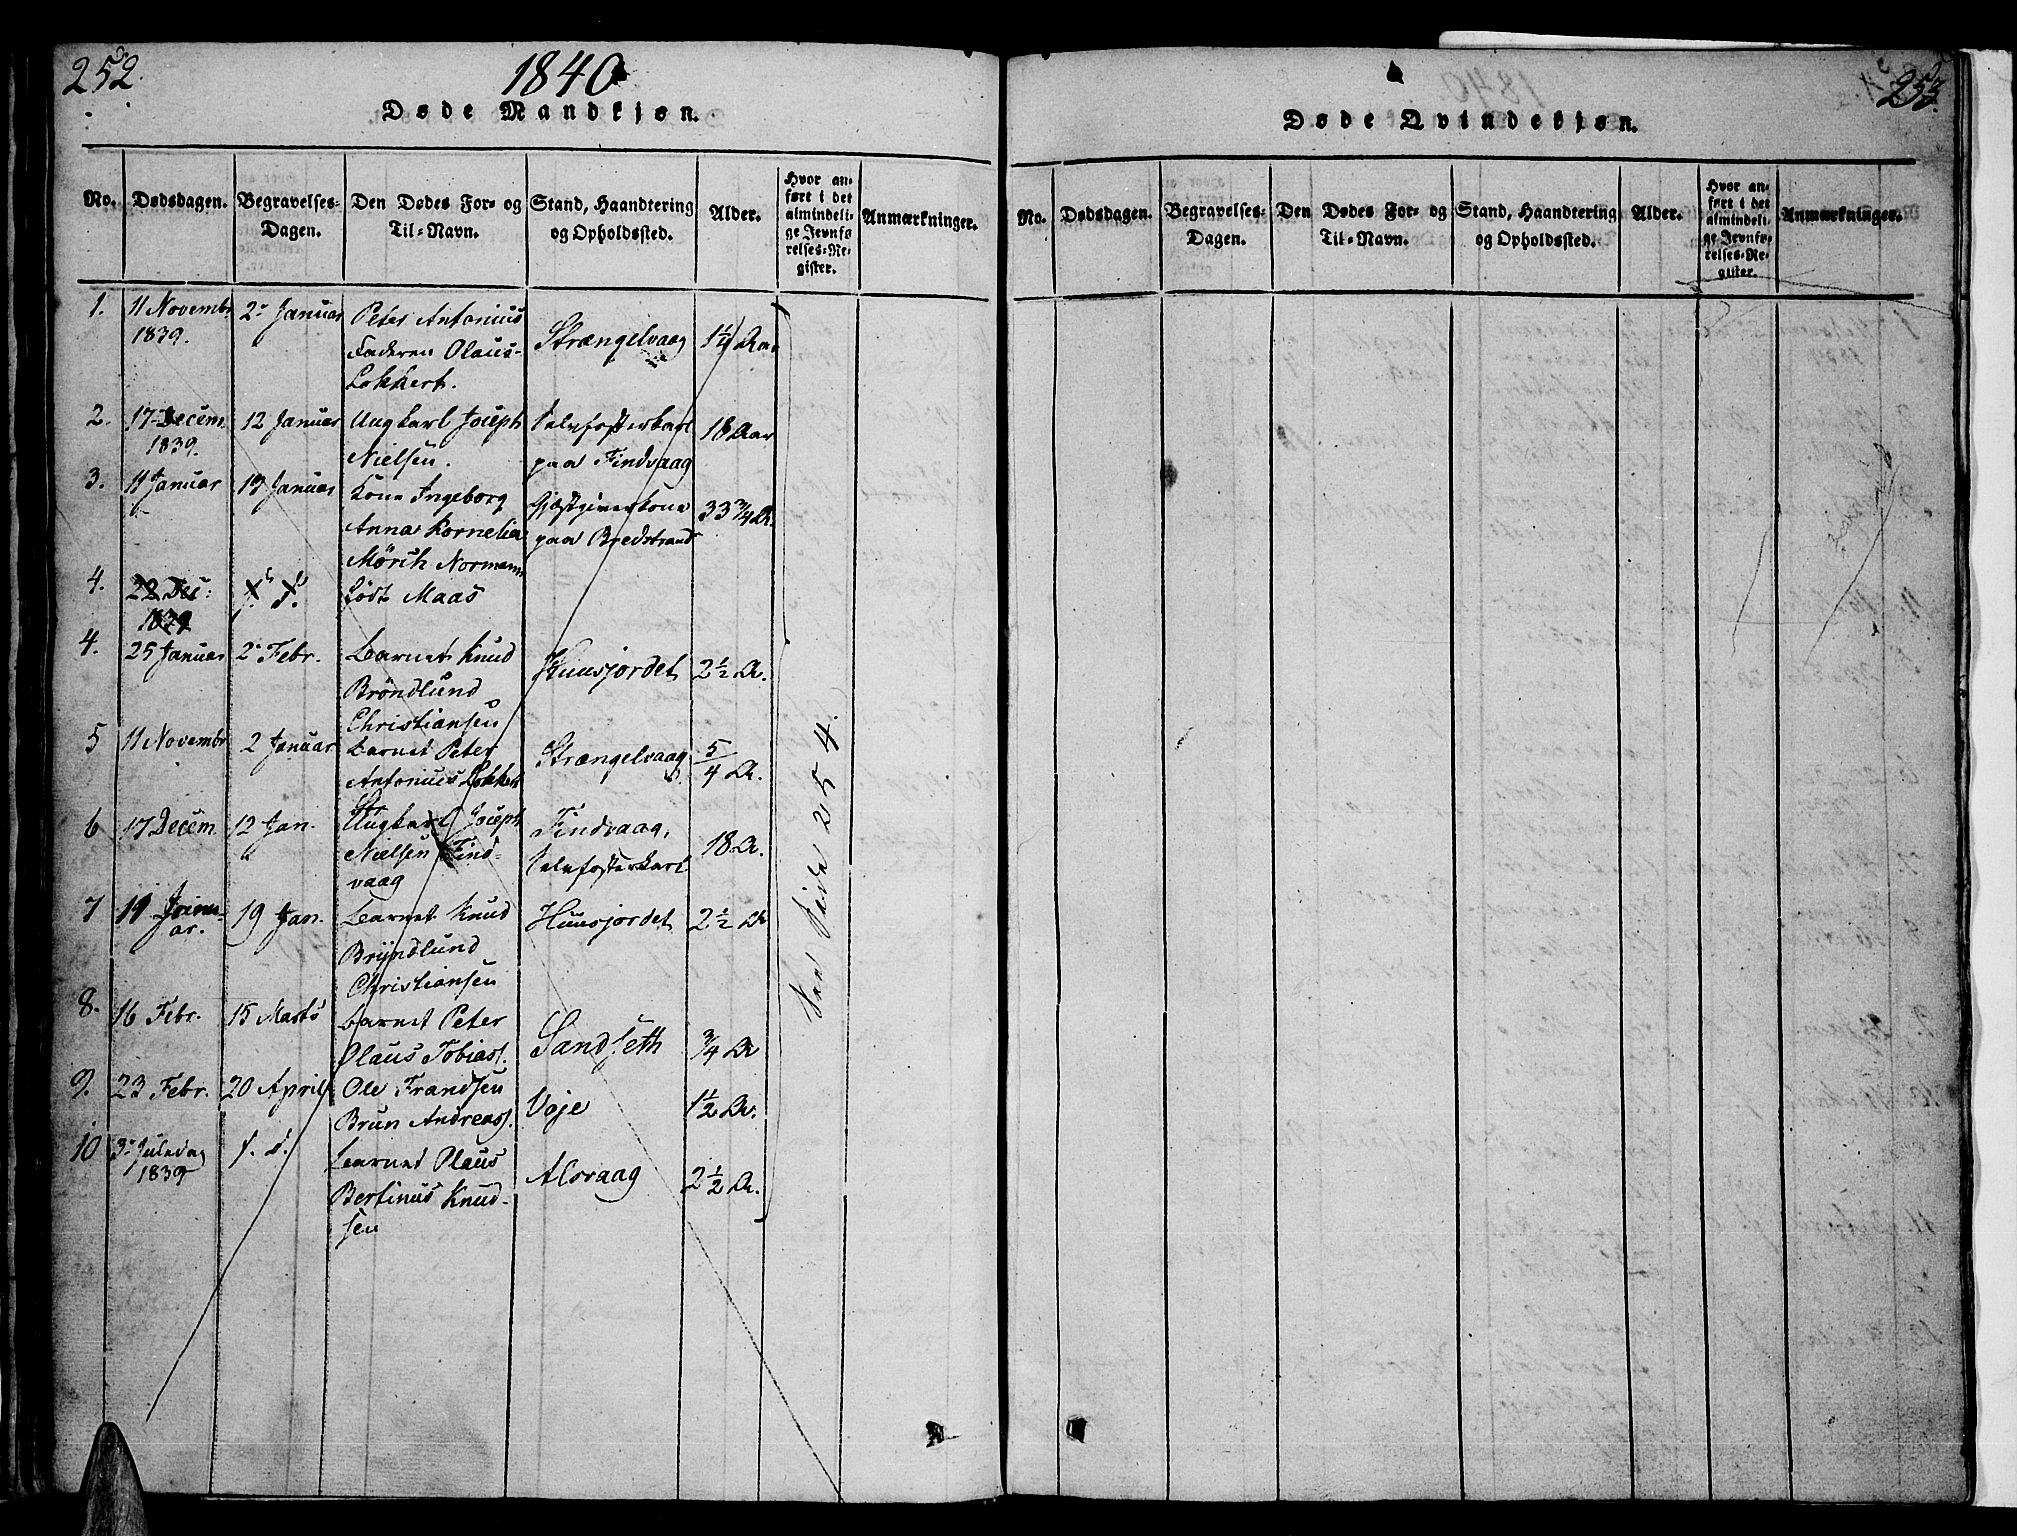 252.
1840
Døde Mandkjøn.
No.
Dødsdagen.
Begravelses-
Dagen.
Den Dødes For- og
Til-Navn.
Stand, Haandtering
og Opholdssted.
Alder.
Hvor an-
ført i det
almindeli-
ge Jevnfø-
relses-Re-
gister.
Anmærkninger.
1.
11 Novembr
1839.
2- Januar
Peter Antonius
Faderen Olaus
Lokkert.
Strængelvaag
1 1/4 Aar
2.
17 Decem
1839.
12 Januar
Ungkarl Joseph
Nielsen.
Selvfosterkarl
paa Findvaag
18 Aar
3.
11 Januar
19 Januar
Kone Ingeborg
Anna Kornelia
Mörch Normann
født Maas
Gjæstgiverkone
paa Bredstrand
33 3/4 A.
4.
22 Dec:
1839
4.
25 Januar
2- Febr.
Barnet Knud
Bröndlund
Christiansen
Huusjordet
2 1/2 A.
5
11 Novembr
2 Januar
Barnet Peter
Antonius Lokkert
Strængelvaag
5/4 A.
6
17 Decem
12 Jan.
Ungkarl Joseph
Nielsen Find-
vaag
Findvaag,
Selvfosterkarl
18 A.
7
19 Janu-
ar.
19 Jan.
Barnet Knud
Bryndlund
Christiansen
Huusjordet
2 1/2 A
8.
16 Febr.
15 Marts
Barnet Peter
Olaus Tobiass.
Sandseth
3/4 A
9.
23 Febr.
20 April
Ole Frandsen
Brun Andreass.
Voje
1 1/2 A.
10
3- Juledag
1839
f. d.
Barnet Olaus
Bertinus Knud-
sen
Alsvaag
2 1/2 A.
Side 254.
253.
Døde Qvindekjøn.
No.
Dødsdagen.
Begravelses-
Dagen.
Den Dødes For- og
Til-Navn.
Stand, Haandtering
og Opholdssted.
Alder.
Hvor an-
ført i det
almindeli-
ge Jevnfø-
relses-Re-
gister.
Anmærkninger.